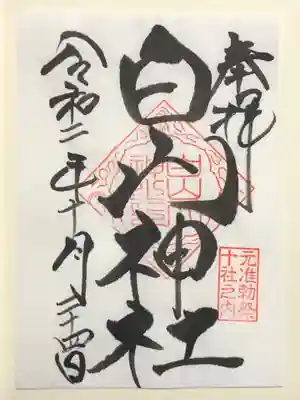 奉拝
元准勅祭
十社之内
白山神社
令和二年十月二十四日